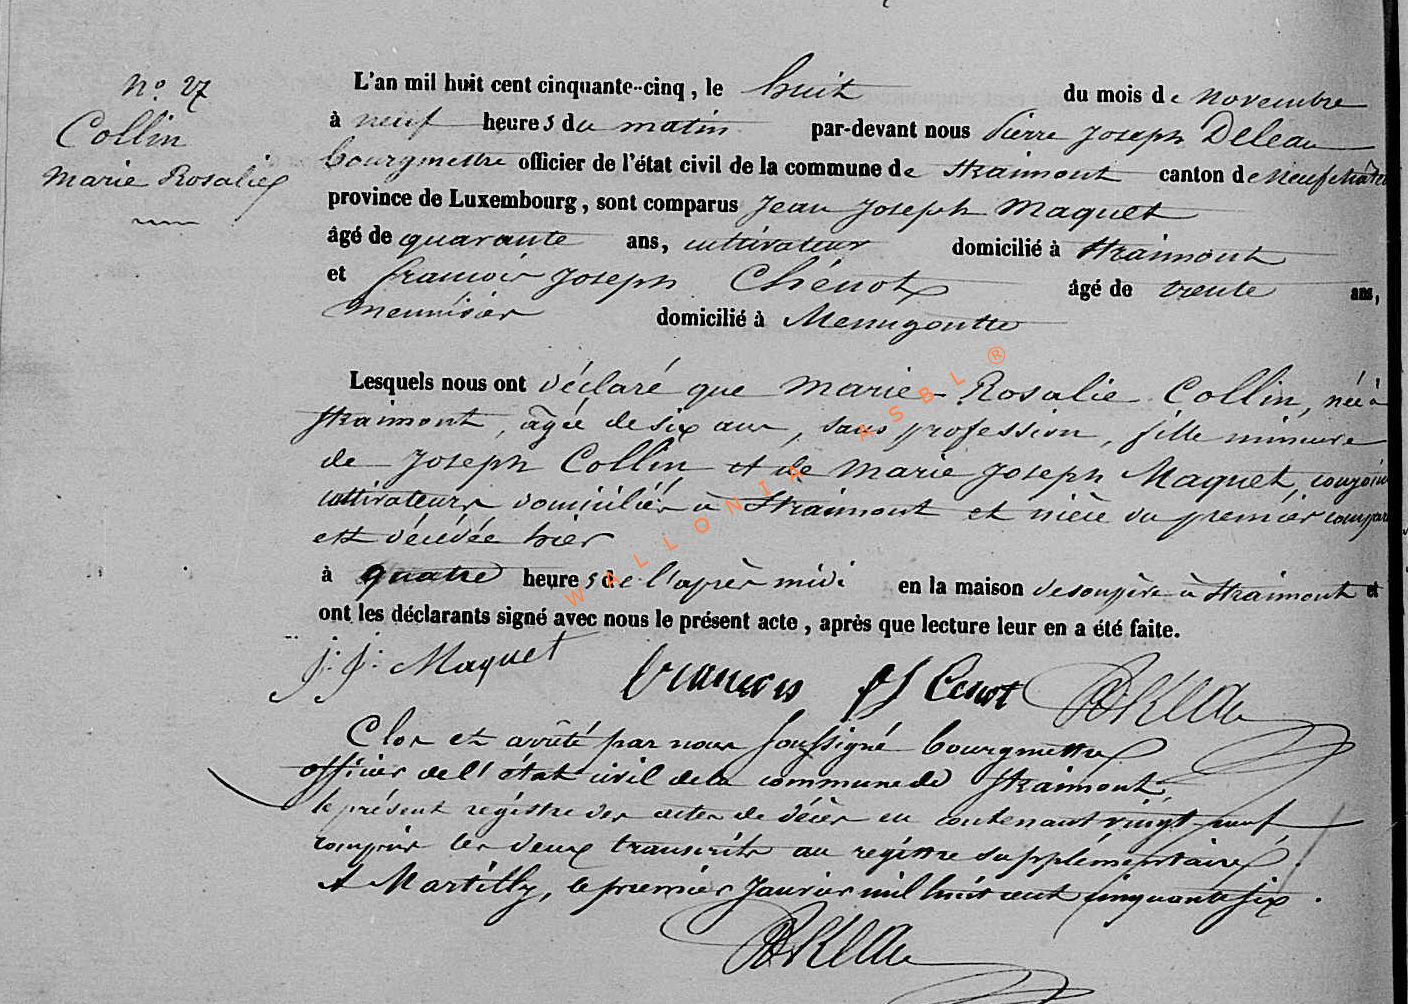 N.o 27
Collin
Marie Rosalie
L'an mil huit cent cinquante-cinq, le huit du mois de novembre
à neuf heures du matin par-devant nous Pierre Joseph Deleau
bourgmestre officier de l'état civil de la commune de Straimont canton de Neufchâteau
province de Luxembourg, sont comparus Jean Joseph Maquet
âgé de quarante ans, cultivateur domicilié à Straimont
et François Joseph Chénot âgé de trente ans,
meunier domicilié à Menugoutte
Lesquels nous ont déclaré que Marie-Rosalie Collin, née à
Straimont, âgée de six ans, sans profession, fille mineure
de Joseph Collin et de Marie Joseph Maquet, conjoints
cultivateurs domiciliés à Straimont et nièce du premier comparant
est décédée hier
à quatre heures de l'après midi en la maison de son père à Straimont et
ont les déclarants signé avec nous le présent acte, après que lecture leur en a été faite.
j: j: Maquet François Deleau
Clos et arrêté par nous soussigné bourgmestre
officier de l'état civil de la commune de Straimont,
le présent régistre des actes de décès en contenant vingt-neuf
compris les deux transcrits au registre supplémentaire.
A Martilly, le premier Janvier mil huit cent cinquante six.
Deleau
WALLONIA ASBL ®